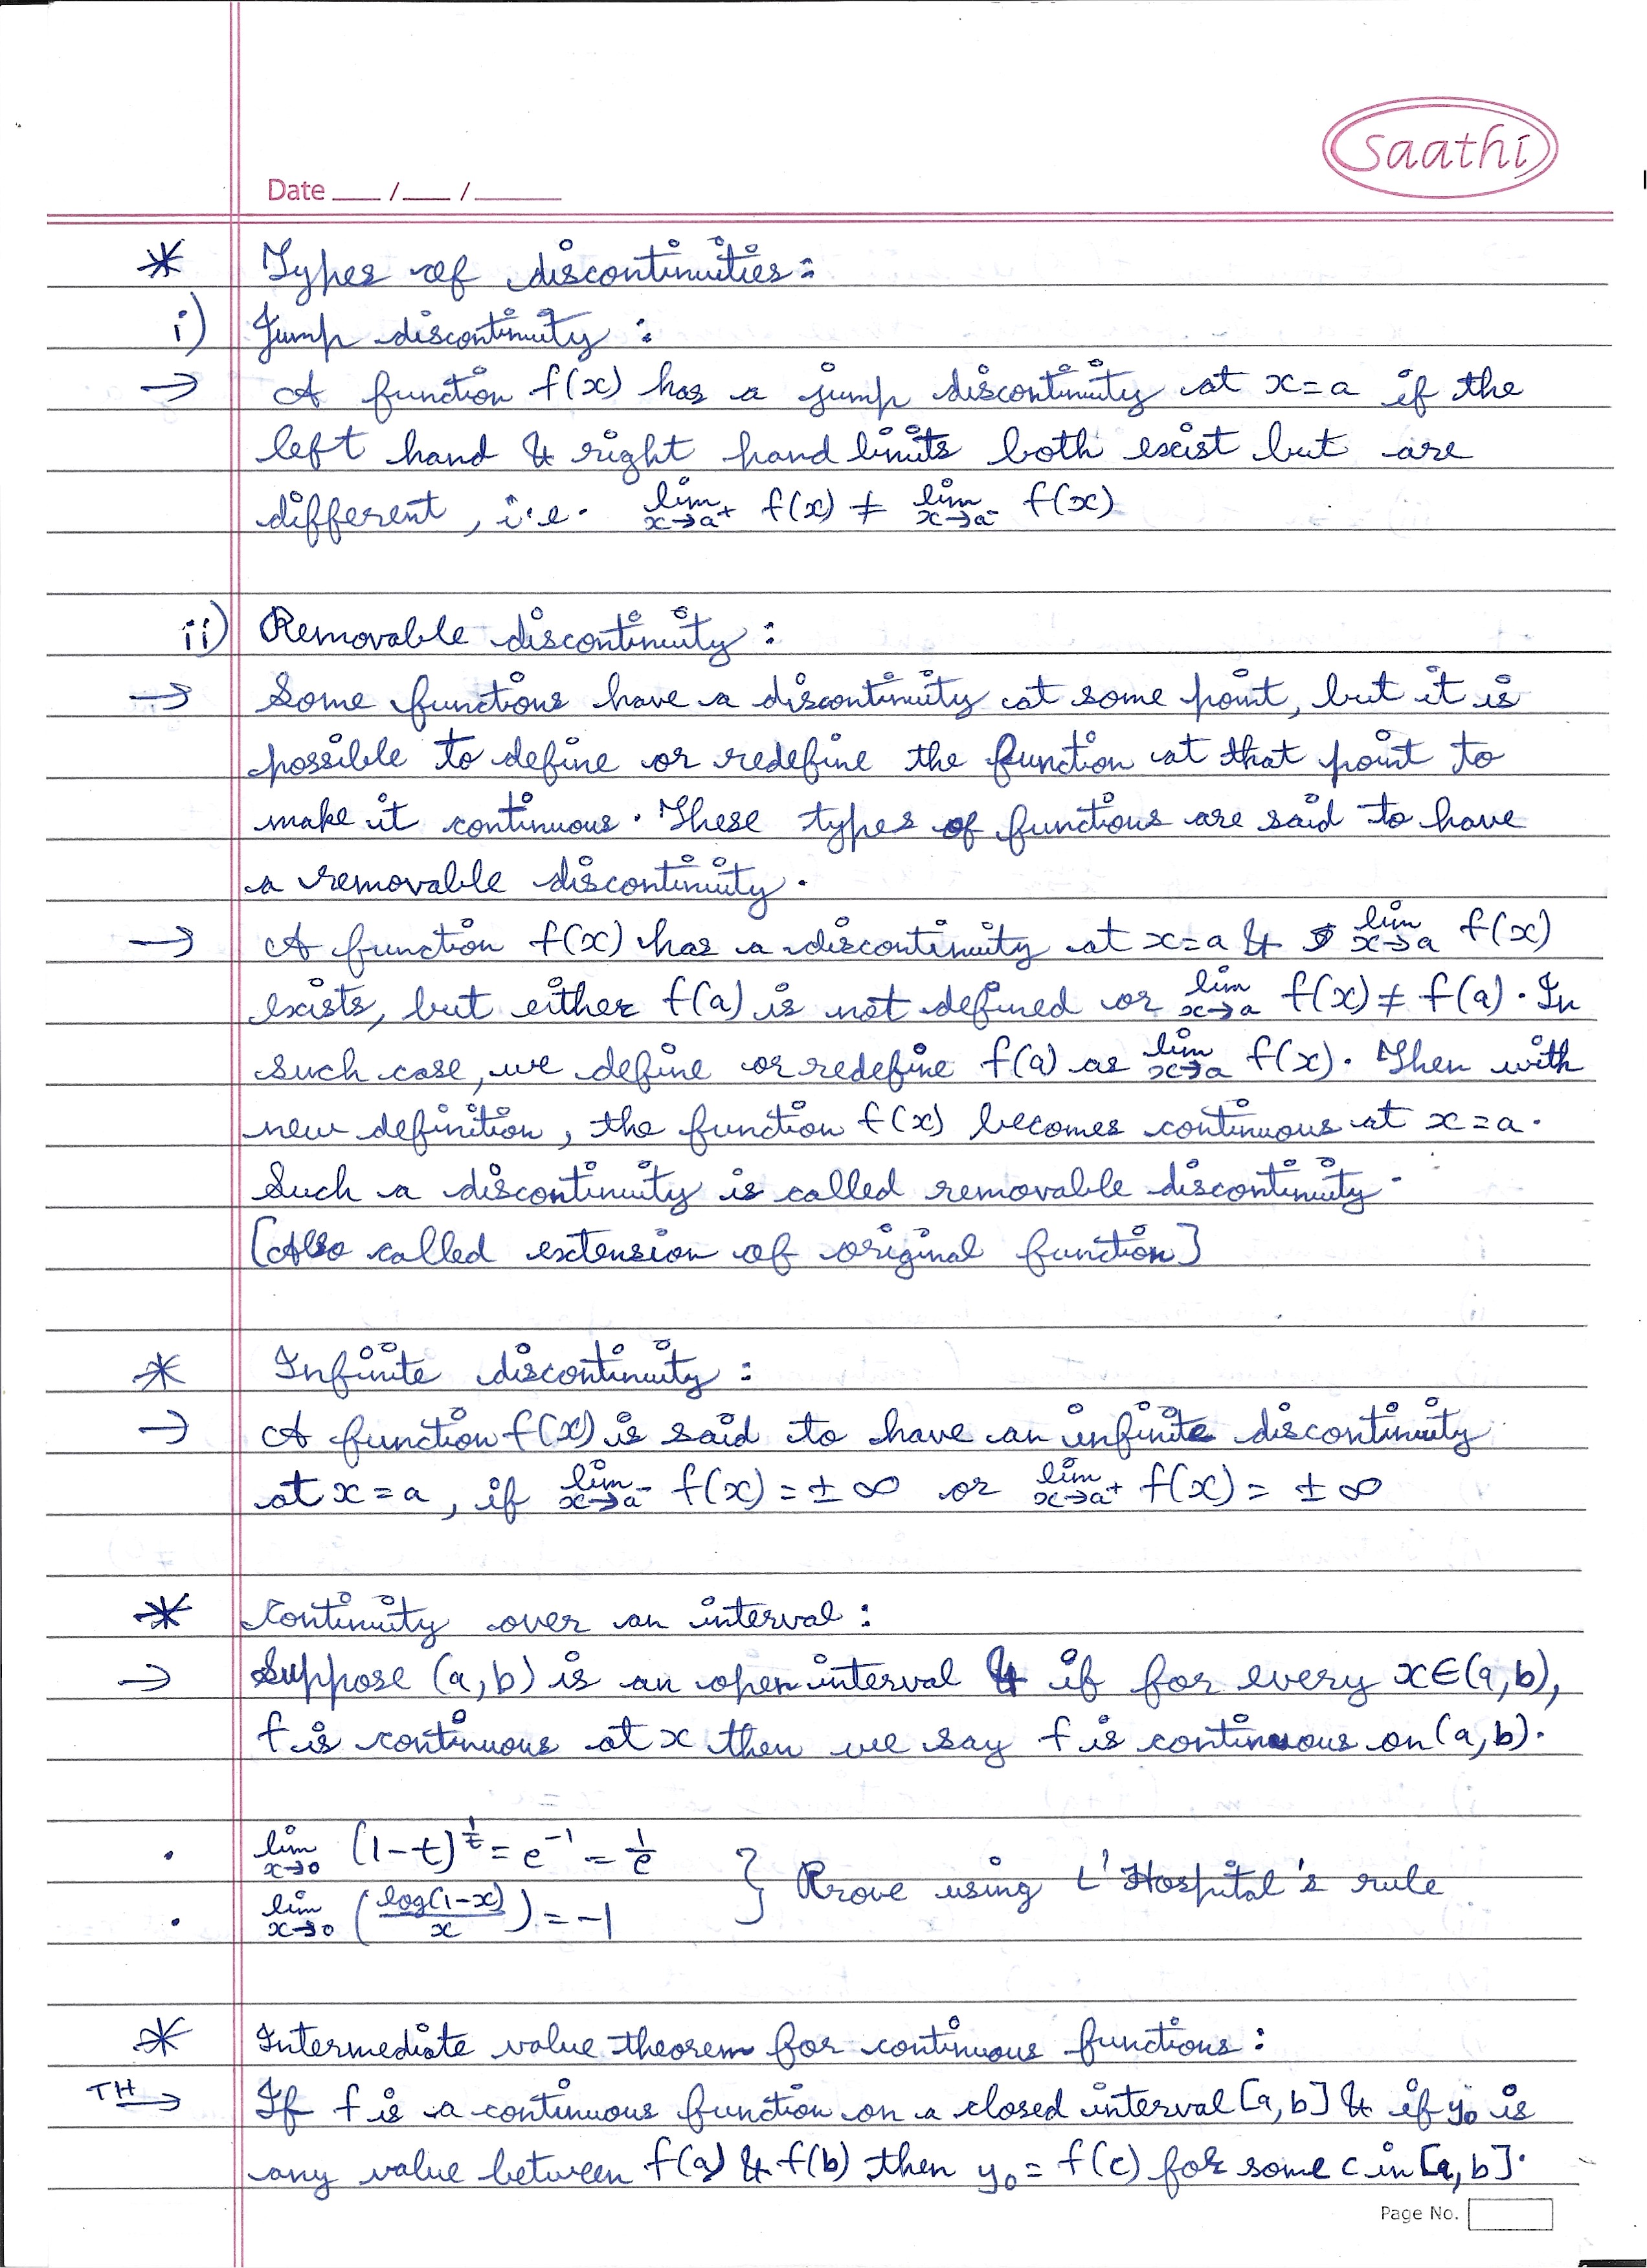 saathi
Date ___ /___ /______
* Types of discontinuities:
i) Jump discontinuity:
→ A function f(x) has a jump discontinuity at x=a if the
left hand & right hand limits both exist but are
different, i.e. lim x→a⁺ f(x) ≠ lim x→a⁻ f(x)
ii) Removable discontinuity:
→ Some functions have a discontinuity at some point, but it is
possible to define or redefine the function at that point to
make it continuous. These types of functions are said to have
a removable discontinuity.
→ A function f(x) has a discontinuity at x=a & lim x→a f(x)
exists, but either f(a) is not defined or lim x→a f(x) ≠ f(a). In
such case, we define or redefine f(a) as lim x→a f(x). Then with
new definition, the function f(x) becomes continuous at x=a.
Such a discontinuity is called removable discontinuity.
[Also called extension of original function]
* Infinite discontinuity:
→ A function f(x) is said to have an infinite discontinuity
at x=a, if lim x→a⁻ f(x) = ±∞ or lim x→a⁺ f(x) = ±∞
* Continuity over an interval:
→ Suppose (a,b) is an open interval & if for every x∈(a,b),
f is continuous at x then we say f is continuous on (a,b).
. lim x→0 (1-t)^(1/t) = e⁻¹ = 1/e
. lim x→0 (log(1-x)/x) = -1 } Prove using L'Hospital's rule
* Intermediate value theorem for continuous functions:
TH → If f is a continuous function on a closed interval [a,b] & if y₀ is
any value between f(a) & f(b) then y₀ = f(c) for some c in [a,b].
Page No.